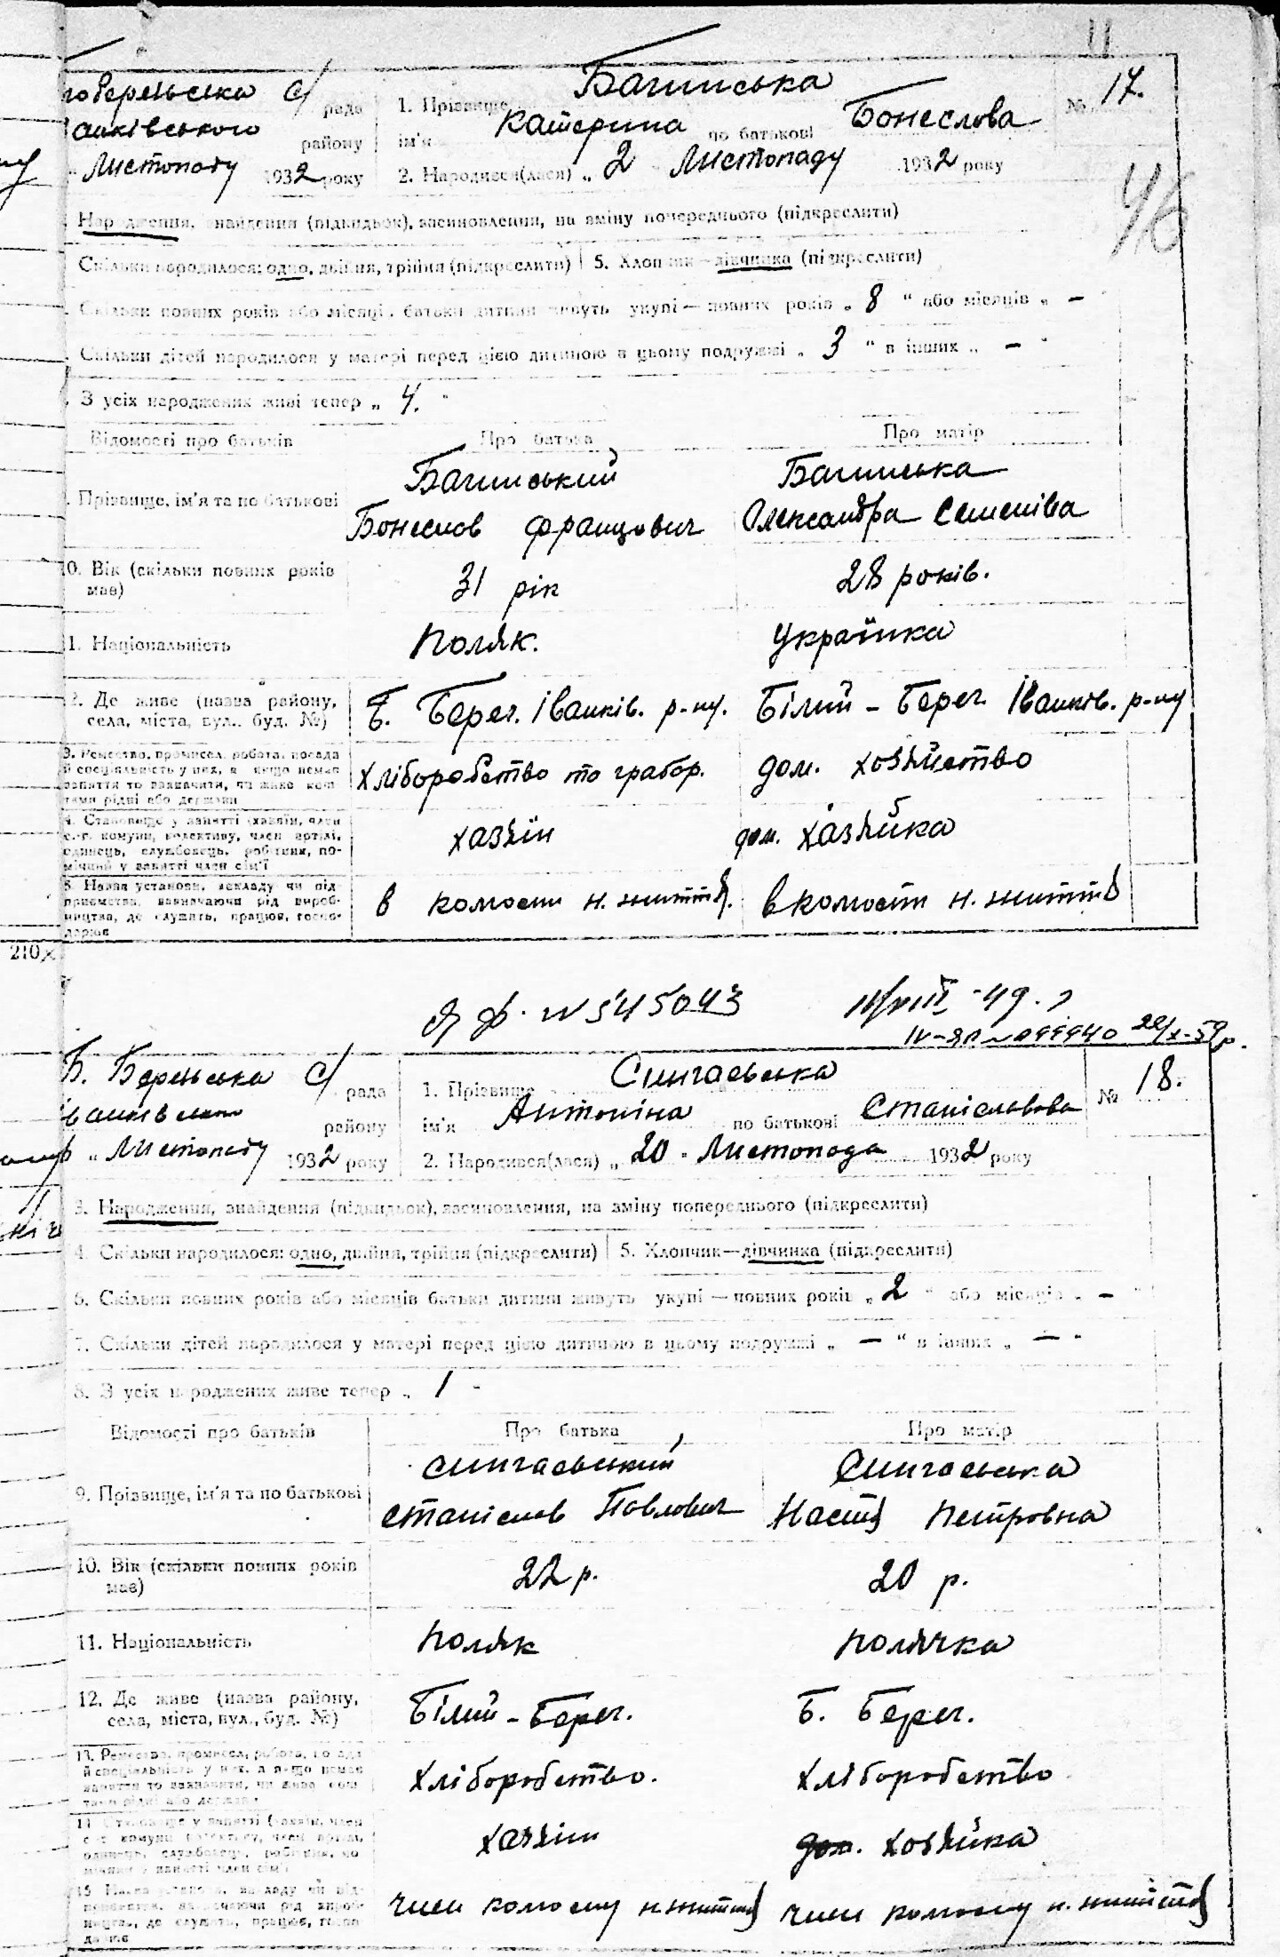 11
Багинська
рада 1. Прізвище № 17.
район у ім'я Катерина по батькові Бонеслова
Листопаду 1932 року 2. Народився(лася) „ 2 Листопаду 1932 року
46
Народження, знайдення (підкидьок), засиновлення, на зміну попереднього (підкреслити)
Скільки народилося: одно, двійня, трійня (підкреслити) 5. Хлопчик—дівчинка (підкреслити)
Скільки повних років або місяців батьки дитини живуть укупі — повних років „ 8 “ або місяців „ —
Скільки дітей народилося у матері перед цією дитиною в цьому подружжі „ 3 “ в інших „ —
З усіх народжених живі тепер „ 4.
Відомості про батьків Про батька Про матір
Багинський Багинська
Прізвище, ім'я та по батькові
Бонеслов Францович Олександра Семенівa
0. Вік (скільки повних років має) 31 рік 28 років.
1. Національність Поляк. Українка
2. Де живе (назва району, села, міста, вул., буд. №) Б. Берег. Іванків. р-ну. Білий - Берег Іванків. р-ну
3. Ремество, промисел, робота, посада й спеціяльність у них, а якщо немає заняття то зазначити, чи живе коштами рідні або держави
Хліборобство то грабор. дом. хозяйство
4. Становище у занятті (хазяїн, член с.-г. комуни, колективу, член артілі, одинець, службовець, робітник, помічний у занятті член сім'ї
хазяїн дом. хазяйка
5. Назва установи, закладу чи підприємства, зазначаючи рід виробництва, де служить, працює, господарює
в колгоспи н. життя. в колгоспі н. життя
210
N 545043 -49.
Б. Береська С/ рада 1. Прізвище Сингаєвська № 18.
району ім'я Антоніна по батькові Станіславова
„ Листопаду 1932 року 2. Народився(лася) „ 20 “ Листопада 1932 року
3. Народження, знайдення (підкидьок), засиновлення, на зміну попереднього (підкреслити)
4. Скільки народилося: одно, двійня, трійня (підкреслити) 5. Хлопчик—дівчинка (підкреслити)
6. Скільки повних років або місяців батьки дитини живуть укупі — повних років „ 2 “ або місяців „ —
7. Скільки дітей народилося у матері перед цією дитиною в цьому подружжі „ — “ в інших „ —
8. З усіх народжених живе тепер „ 1
Відомості про батьків Про батька Про матір
Сингаєвський Сингаєвська
9. Прізвище, ім'я та по батькові
Станіслав Павлович Настя Петровна
10. Вік (скільки повних років має) 22 р. 20 р.
11. Національність Поляк полячка
12. Де живе (назва району, села, міста, вул., буд. №) Білий - Берег. Б. Берег.
13. Ремество, промисел, робота, посада й спеціяльність у них, а якщо немає заняття то зазначити, чи живе коштами рідні або держави
Хліборобство. Хліборобство
хазяїн дом. хозяйка
15. Назва установи, закладу чи підприємства, зазначаючи рід виробництва, де служить, працює, господарює
член колгоспу н. життя член колгоспу н. життя